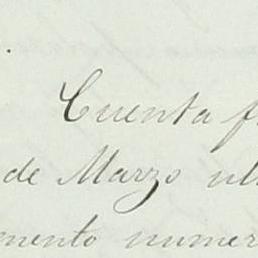 Cuenta f
de Marzo ul
mento numer